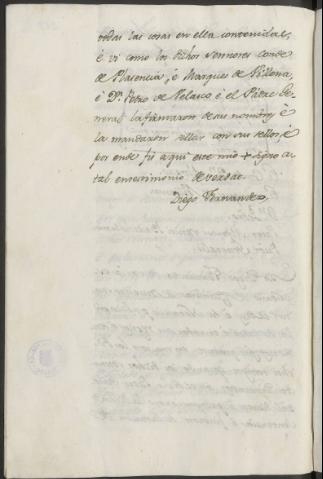 todas las cosas en ella contenidas,
é vi como los dichos sennores conde
de Plasencia, é Marques de Villena,
é Dn. Pedro de Velasco é el Padre Ge-
neral la firmaron de sus nombres è
la mandaron sellar con sus sellos, é
por ende fiz aqui este mio + signo a
tal en testimonio de verdat.
Diego Fernandez.